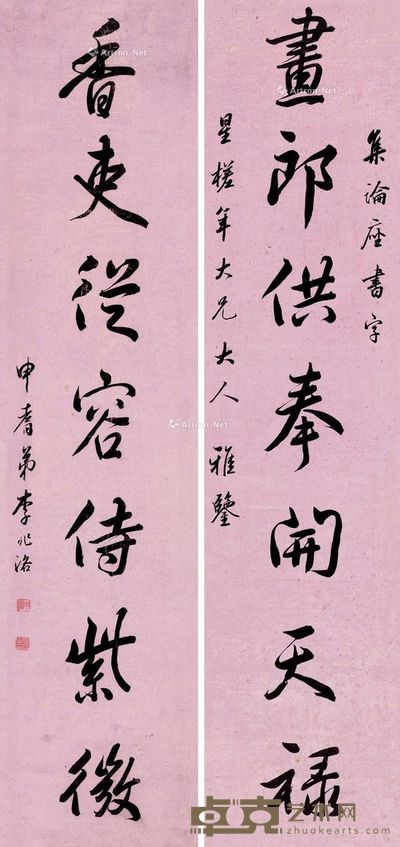 集論座書字
畫郎供奉開天祿
星槎年大兄大人雅鑒
香吏從容侍紫微
申耆弟李兆洛
Artron.Net
Artron.Net
Artron.Net
Artron.Net
卓克艺术网
zhuokearts.com